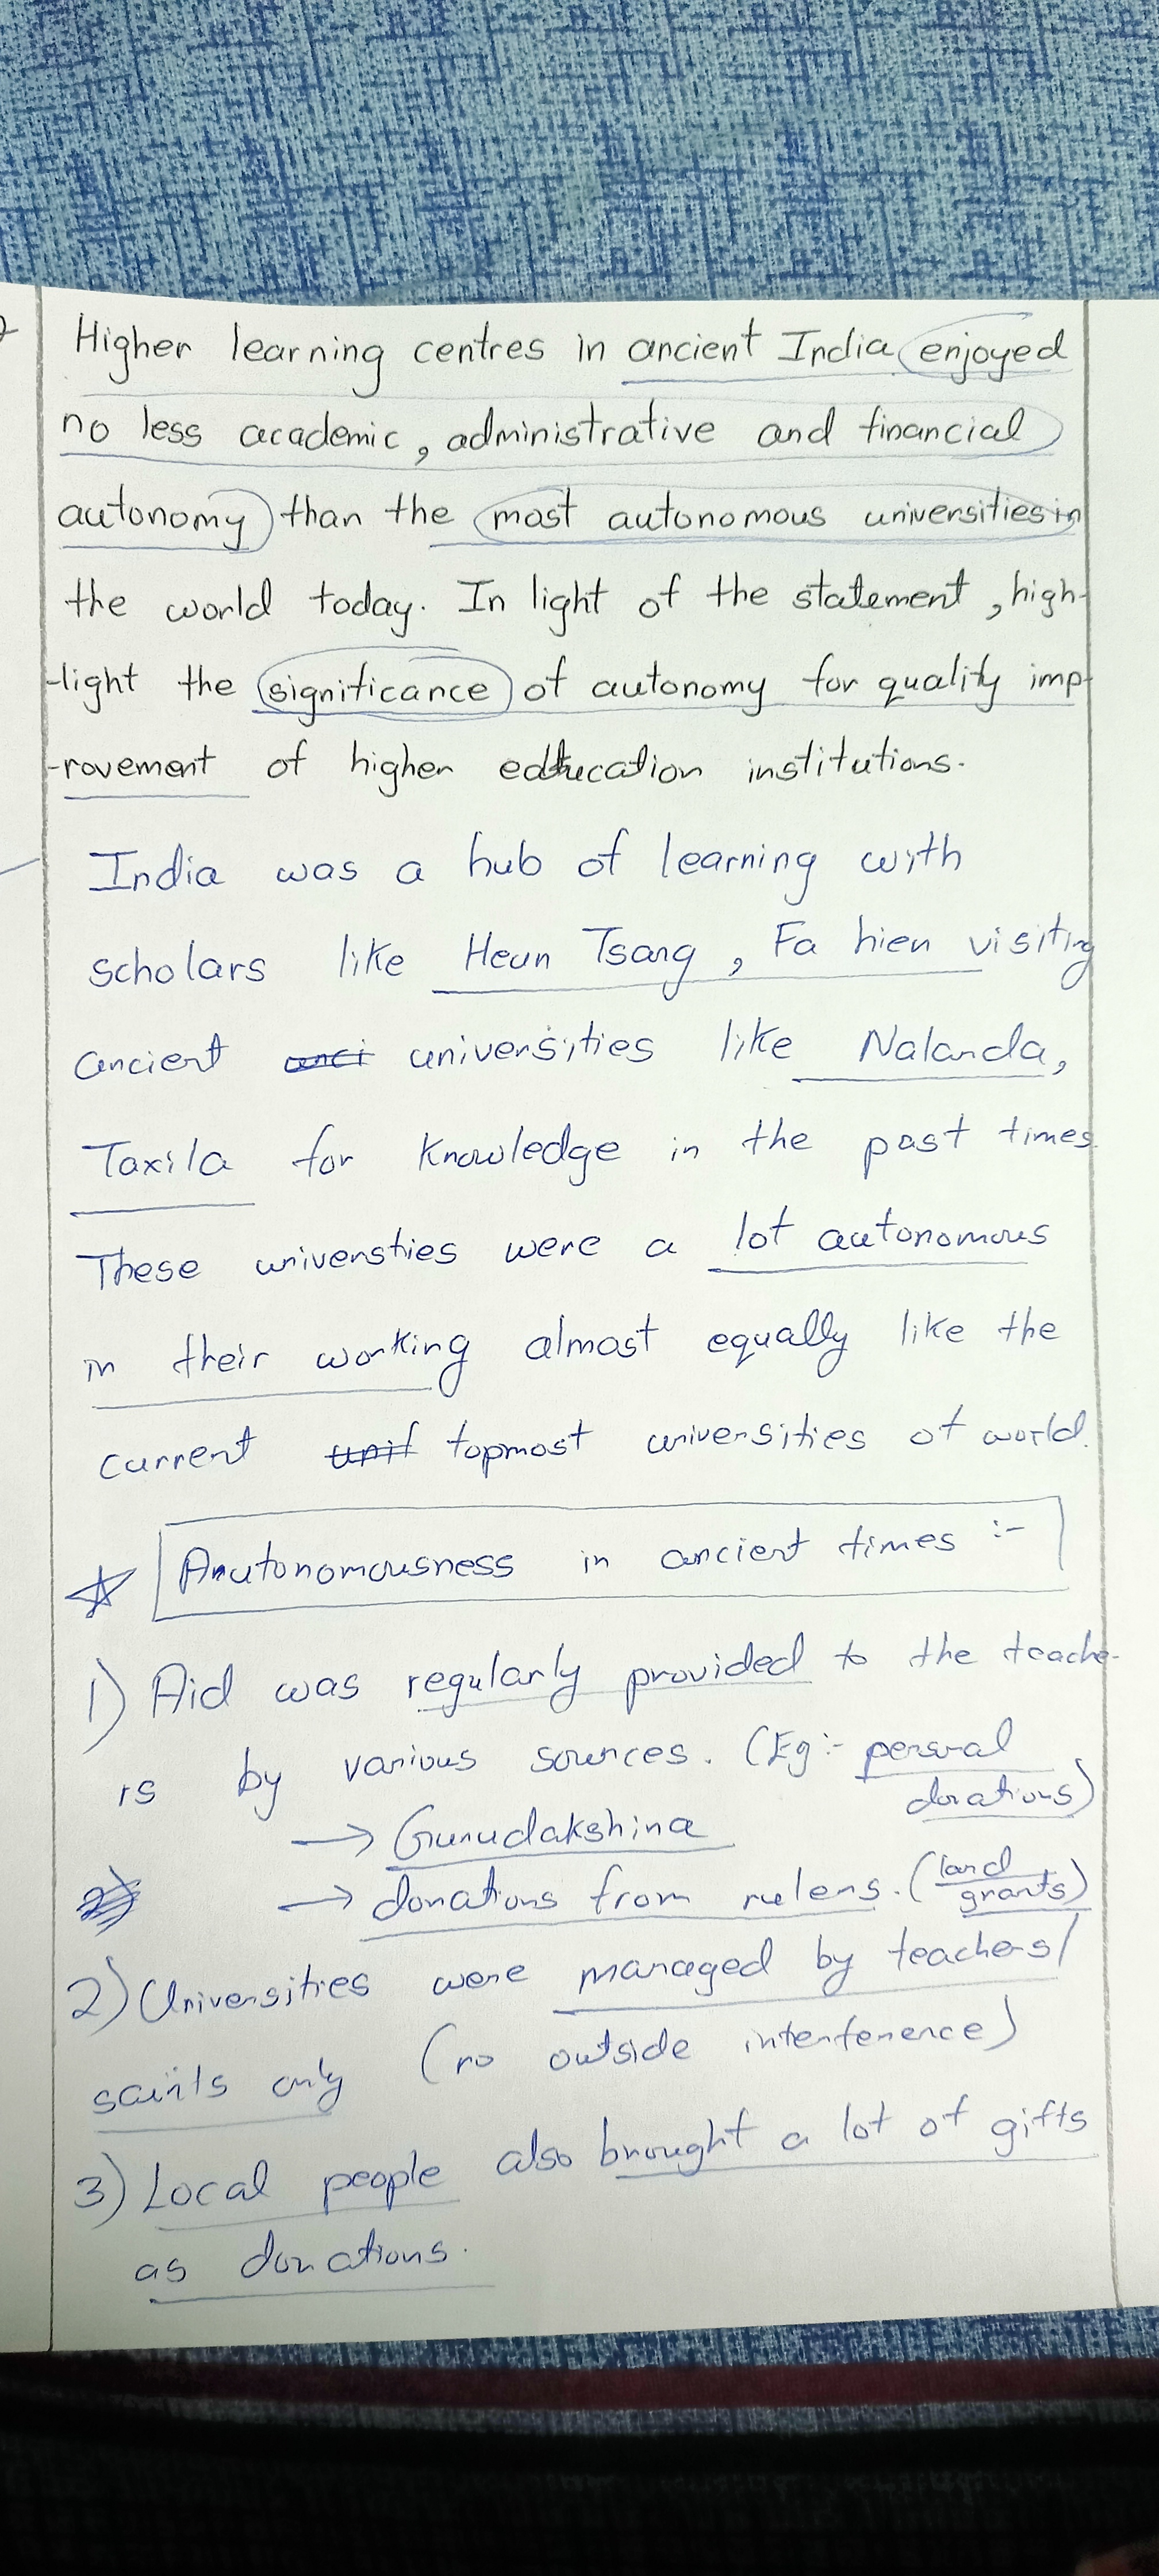 Higher learning centres in ancient India enjoyed
no less academic, administrative and financial
autonomy than the most autonomous universities in
the world today. In light of the statement, high-
-light the significance of autonomy for quality imp-
-rovement of higher education institutions.
India was a hub of learning with
scholars like Heun Tsang, Fa hien visiting
ancient anci universities like Nalanda,
Taxila for knowledge in the past times.
These universties were a lot autonomous
in their working almost equally like the
current unif topmost universities of world.
Autonomousness in ancient times :-
1) Aid was regularly provided to the teache-
rs by various sources. (Eg :- personal
donations)
→ Gurudakshina
→ donations from rulers. (land
grants)
2) Universities were managed by teachers/
saints only (no outside interference)
3) Local people also brought a lot of gifts
as donations.